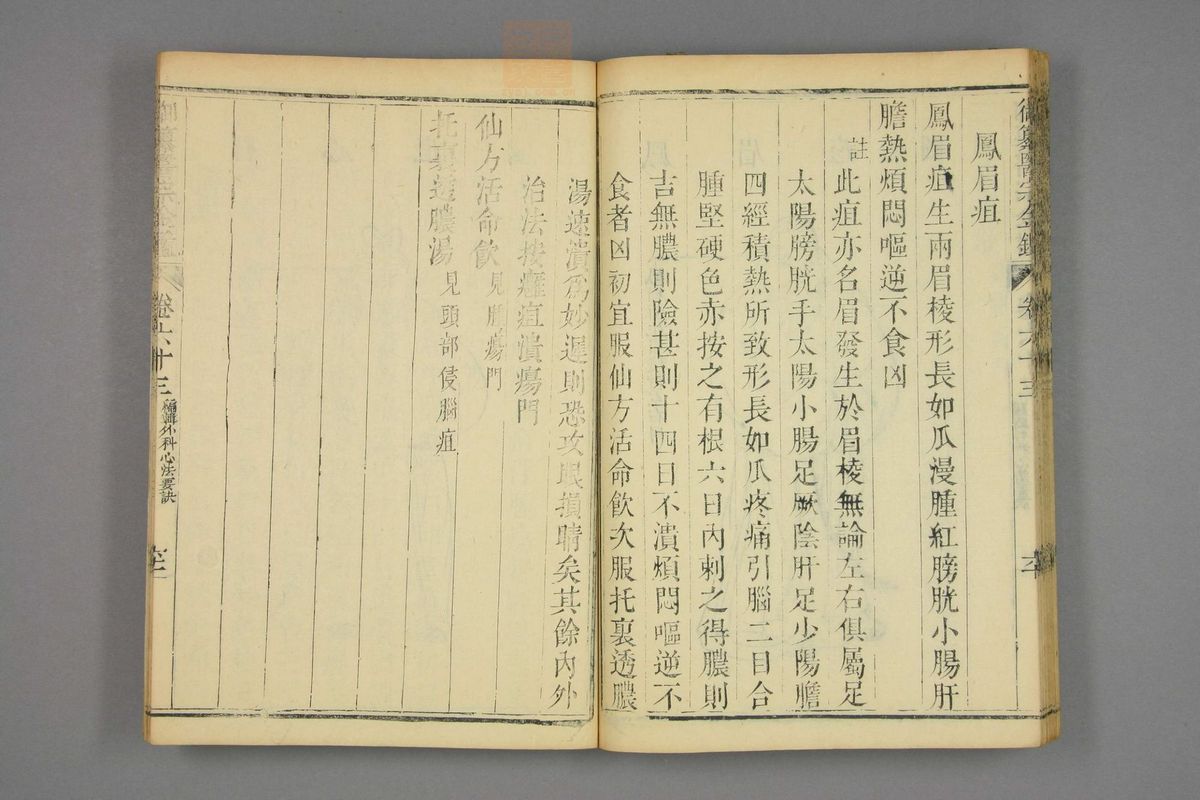 御纂醫宗金鑑 卷六十三
鳳眉疽
鳳眉疽生兩眉棱形長如瓜漫腫紅膀胱小腸肝
膽熱煩悶嘔逆不食凶
註此疽亦名眉發生於眉棱無論左右俱屬足
太陽膀胱手太陽小腸足厥陰肝足少陽膽
四經積熱所致形長如瓜疼痛引腦二目合
腫堅硬色赤按之有根六日內刺之得膿則
吉無膿則險甚則十四日不潰煩悶嘔逆不
食者凶初宜服仙方活命飲次服托裏透膿
湯速潰為妙遲則恐攻眼損睛矣其餘內外
治法按癰疽潰瘍門
仙方活命飲見腫瘍門
托裏透膿湯見頭部侵腦疽
御纂醫宗金鑑 卷六十三 編輯外科心法要訣